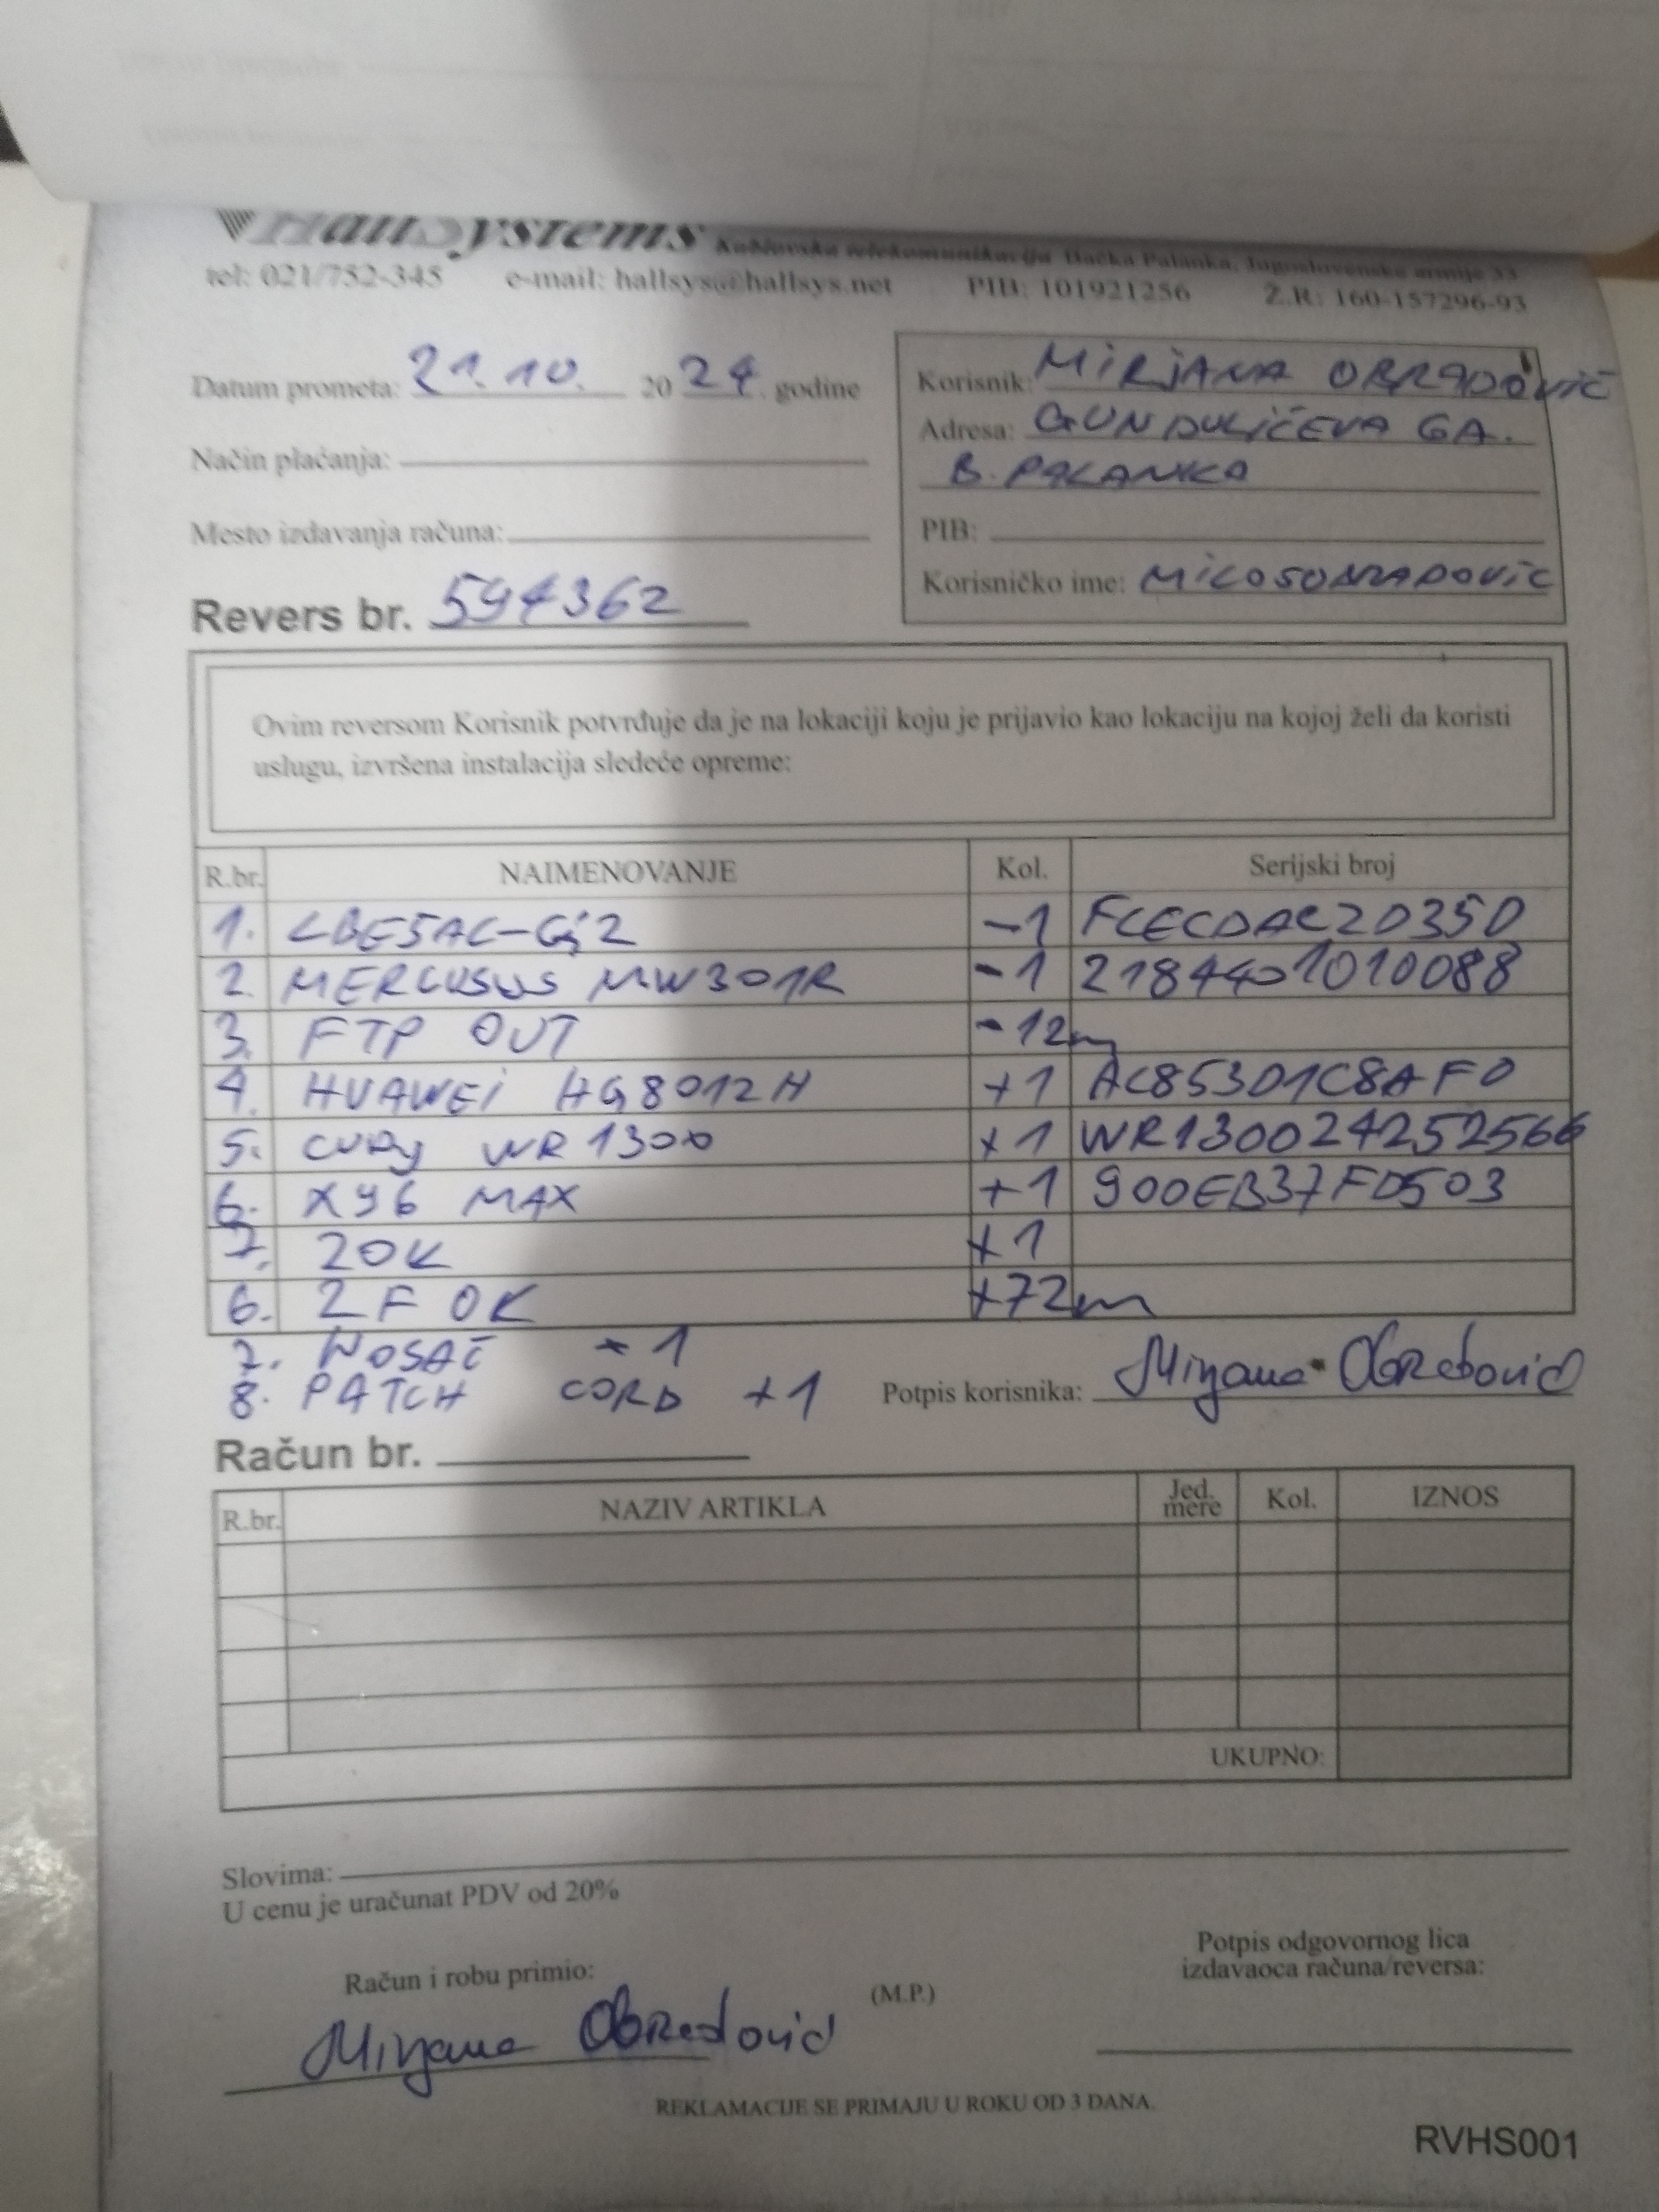 HallSystems Kablovska telekomunikacija Bačka Palanka, Jugoslovenske armije 33
tel: 021/752-345 e-mail: hallsys@hallsys.net PIB: 101921256 Ž.R: 160-157296-93
Datum prometa: 21.10. 2024. godine
Korisnik: MIRJANA OBRADOVIĆ
Adresa: GUNDULIĆEVA 6A.
B. PALANKA
Način plaćanja:
Mesto izdavanja računa:
PIB:
Korisničko ime: MILOSOBRADOVIC
Revers br. 594362
Ovim reversom Korisnik potvrđuje da je na lokaciji koju je prijavio kao lokaciju na kojoj želi da koristi
uslugu, izvršena instalacija sledeće opreme:
R.br. NAIMENOVANJE Kol. Serijski broj
1. LBE5AC-G2 -1 FCECDAC20350
2. MERCUSUS MW301R -1 2184401010088
3. FTP OUT -12m
4. HUAWEI HG8012H +1 AC85301C8AF0
5. CUDY WR1300 +1 WR130024252566
6. X96 MAX +1 900EB37FD503
7. ZOK +1
6. 2F OK +72m
7. NOSAČ -1
8. PATCH CORD +1
Potpis korisnika: Mirjana Obradović
Račun br.
R.br. NAZIV ARTIKLA Jed. mere Kol. IZNOS
UKUPNO:
Slovima:
U cenu je uračunat PDV od 20%
Račun i robu primio:
(M.P.)
Potpis odgovornog lica
izdavaoca računa/reversa:
Mirjana Obradović
REKLAMACIJE SE PRIMAJU U ROKU OD 3 DANA.
RVHS001